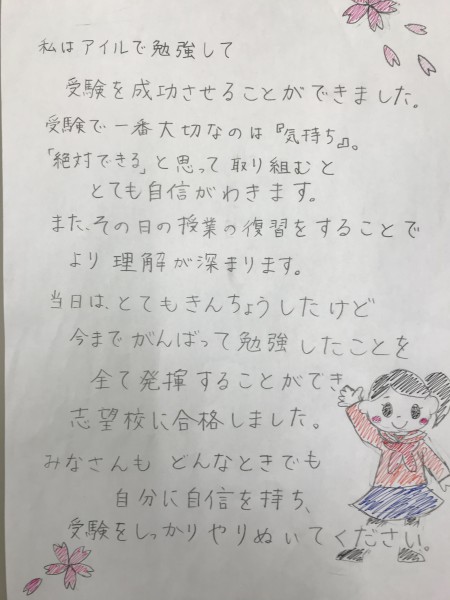 私はアイルで勉強して
受験を成功させることができました。
受験で一番大切なのは『気持ち』。
「絶対できる」と思って取り組むと
とても自信がわきます。
また、その日の授業の復習をすることで
より理解が深まります。
当日は、とてもきんちょうしたけど
今までがんばって勉強したことを
全て発揮することができ、
志望校に合格しました。
みなさんもどんなときでも
自分に自信を持ち、
受験をしっかりやりぬいてください。